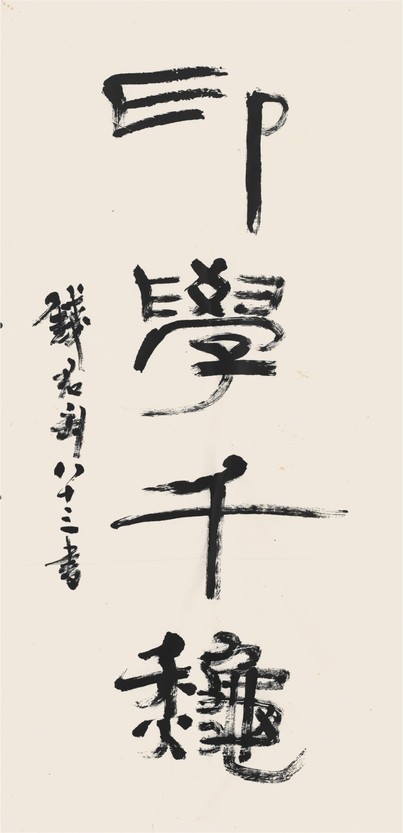 印學千龝
錢君匋八十三書